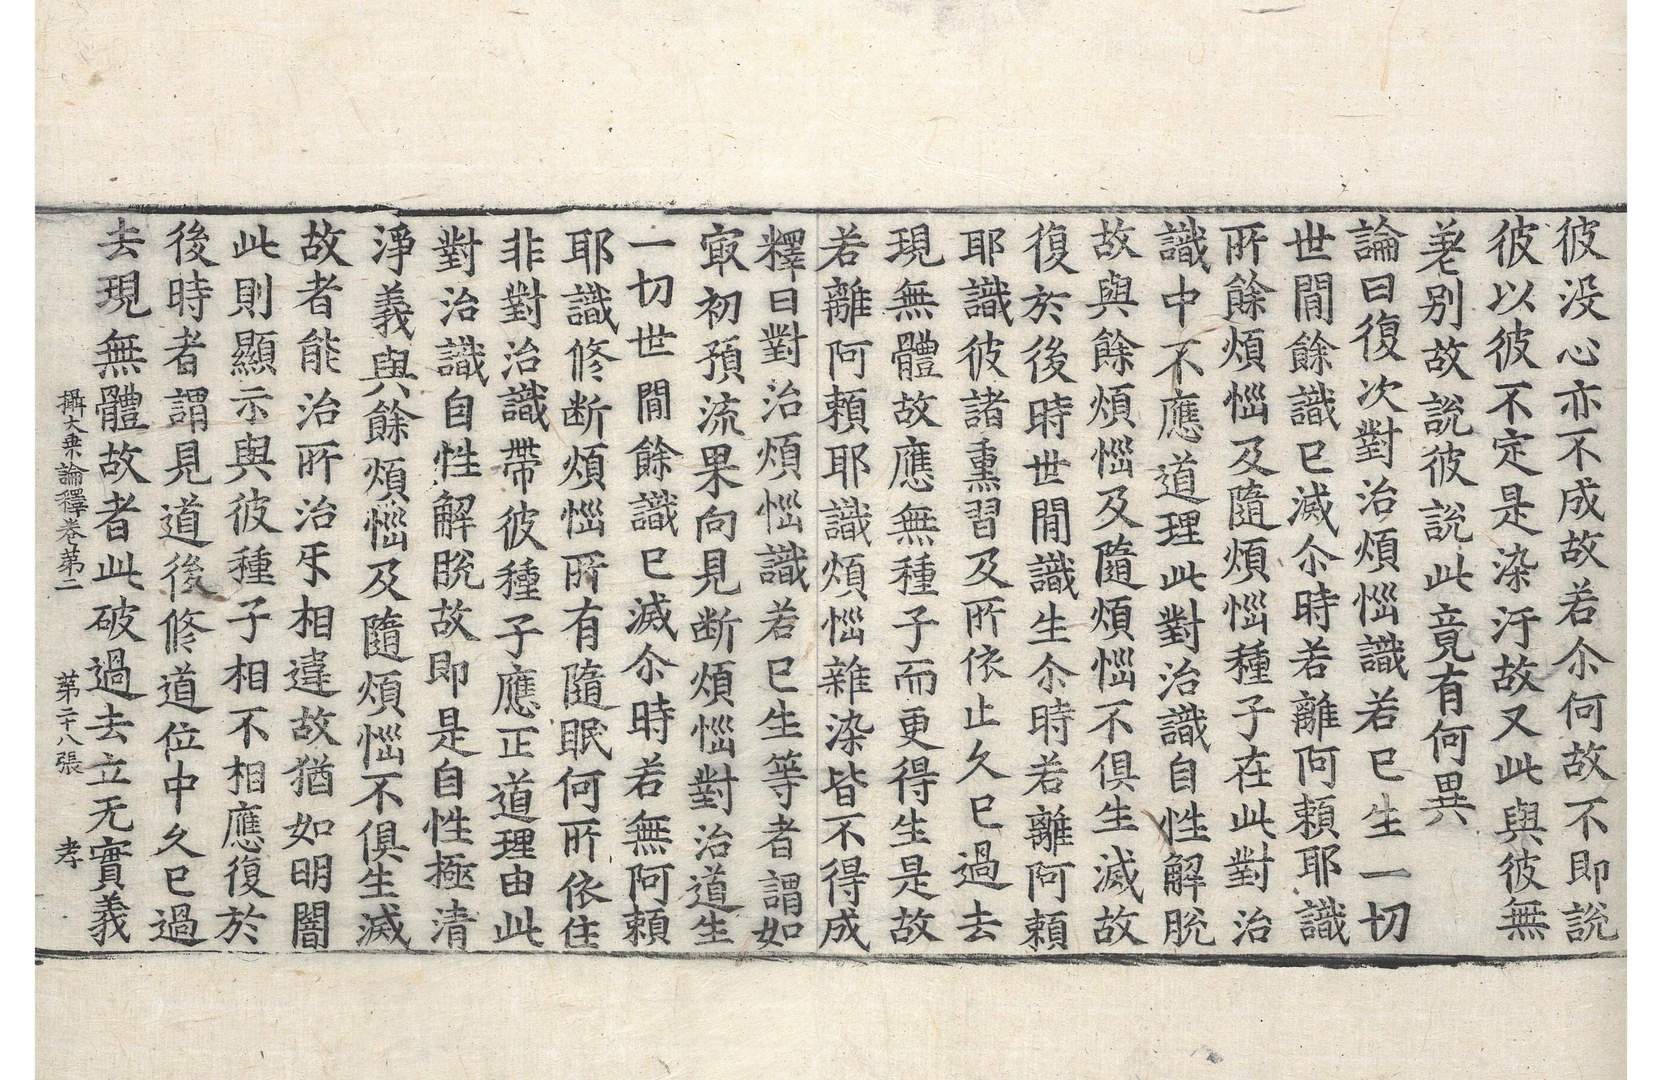 彼没心亦不成故若尒何故不即說
彼以彼不定是染汙故又此與彼無
差别故說彼說此竟有何異
論曰復次對治煩惱識若已生一切
世間餘識已滅尒時若離阿賴耶識
所餘煩惱及隨煩惱種子在此對治
識中不應道理此對治識自性解脫
故與餘煩惱及隨煩惱不俱生滅故
復於後時世間識生尒時若離阿賴
耶識彼諸熏習及所依止久已過去
現無體故應無種子而更得生是故
若離阿賴耶識煩惱雜染皆不得成
釋曰對治煩惱識若已生等者謂如
㝡初預流果向見断煩惱對治道生
一切世間餘識已滅尒時若無阿賴
耶識修断煩惱所有隨眠何所依住
非對治識帶彼種子應正道理由此
對治識自性解脫故即是自性極清
淨義與餘煩惱及隨煩惱不俱生滅
故者能治所治㸦相違故猶如明闇
此則顯示與彼種子相不相應復於
後時者謂見道後修道位中久已過
去現無體故者此破過去立无實義
攝大乗論釋卷第二　第二十八張　孝